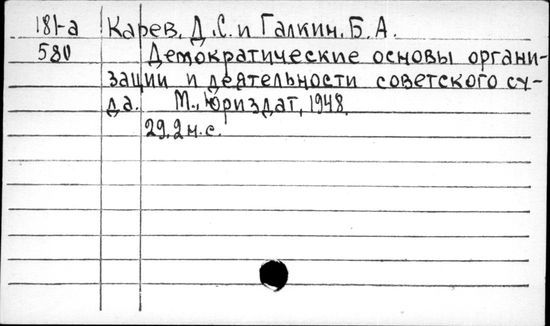 181-а Карев, Д.С. и Галкин, Б.А.
580 Демократические основы органи-
зации и деятельности советского су-
да. М., Юриздат, 1948.
29,2 м.с.